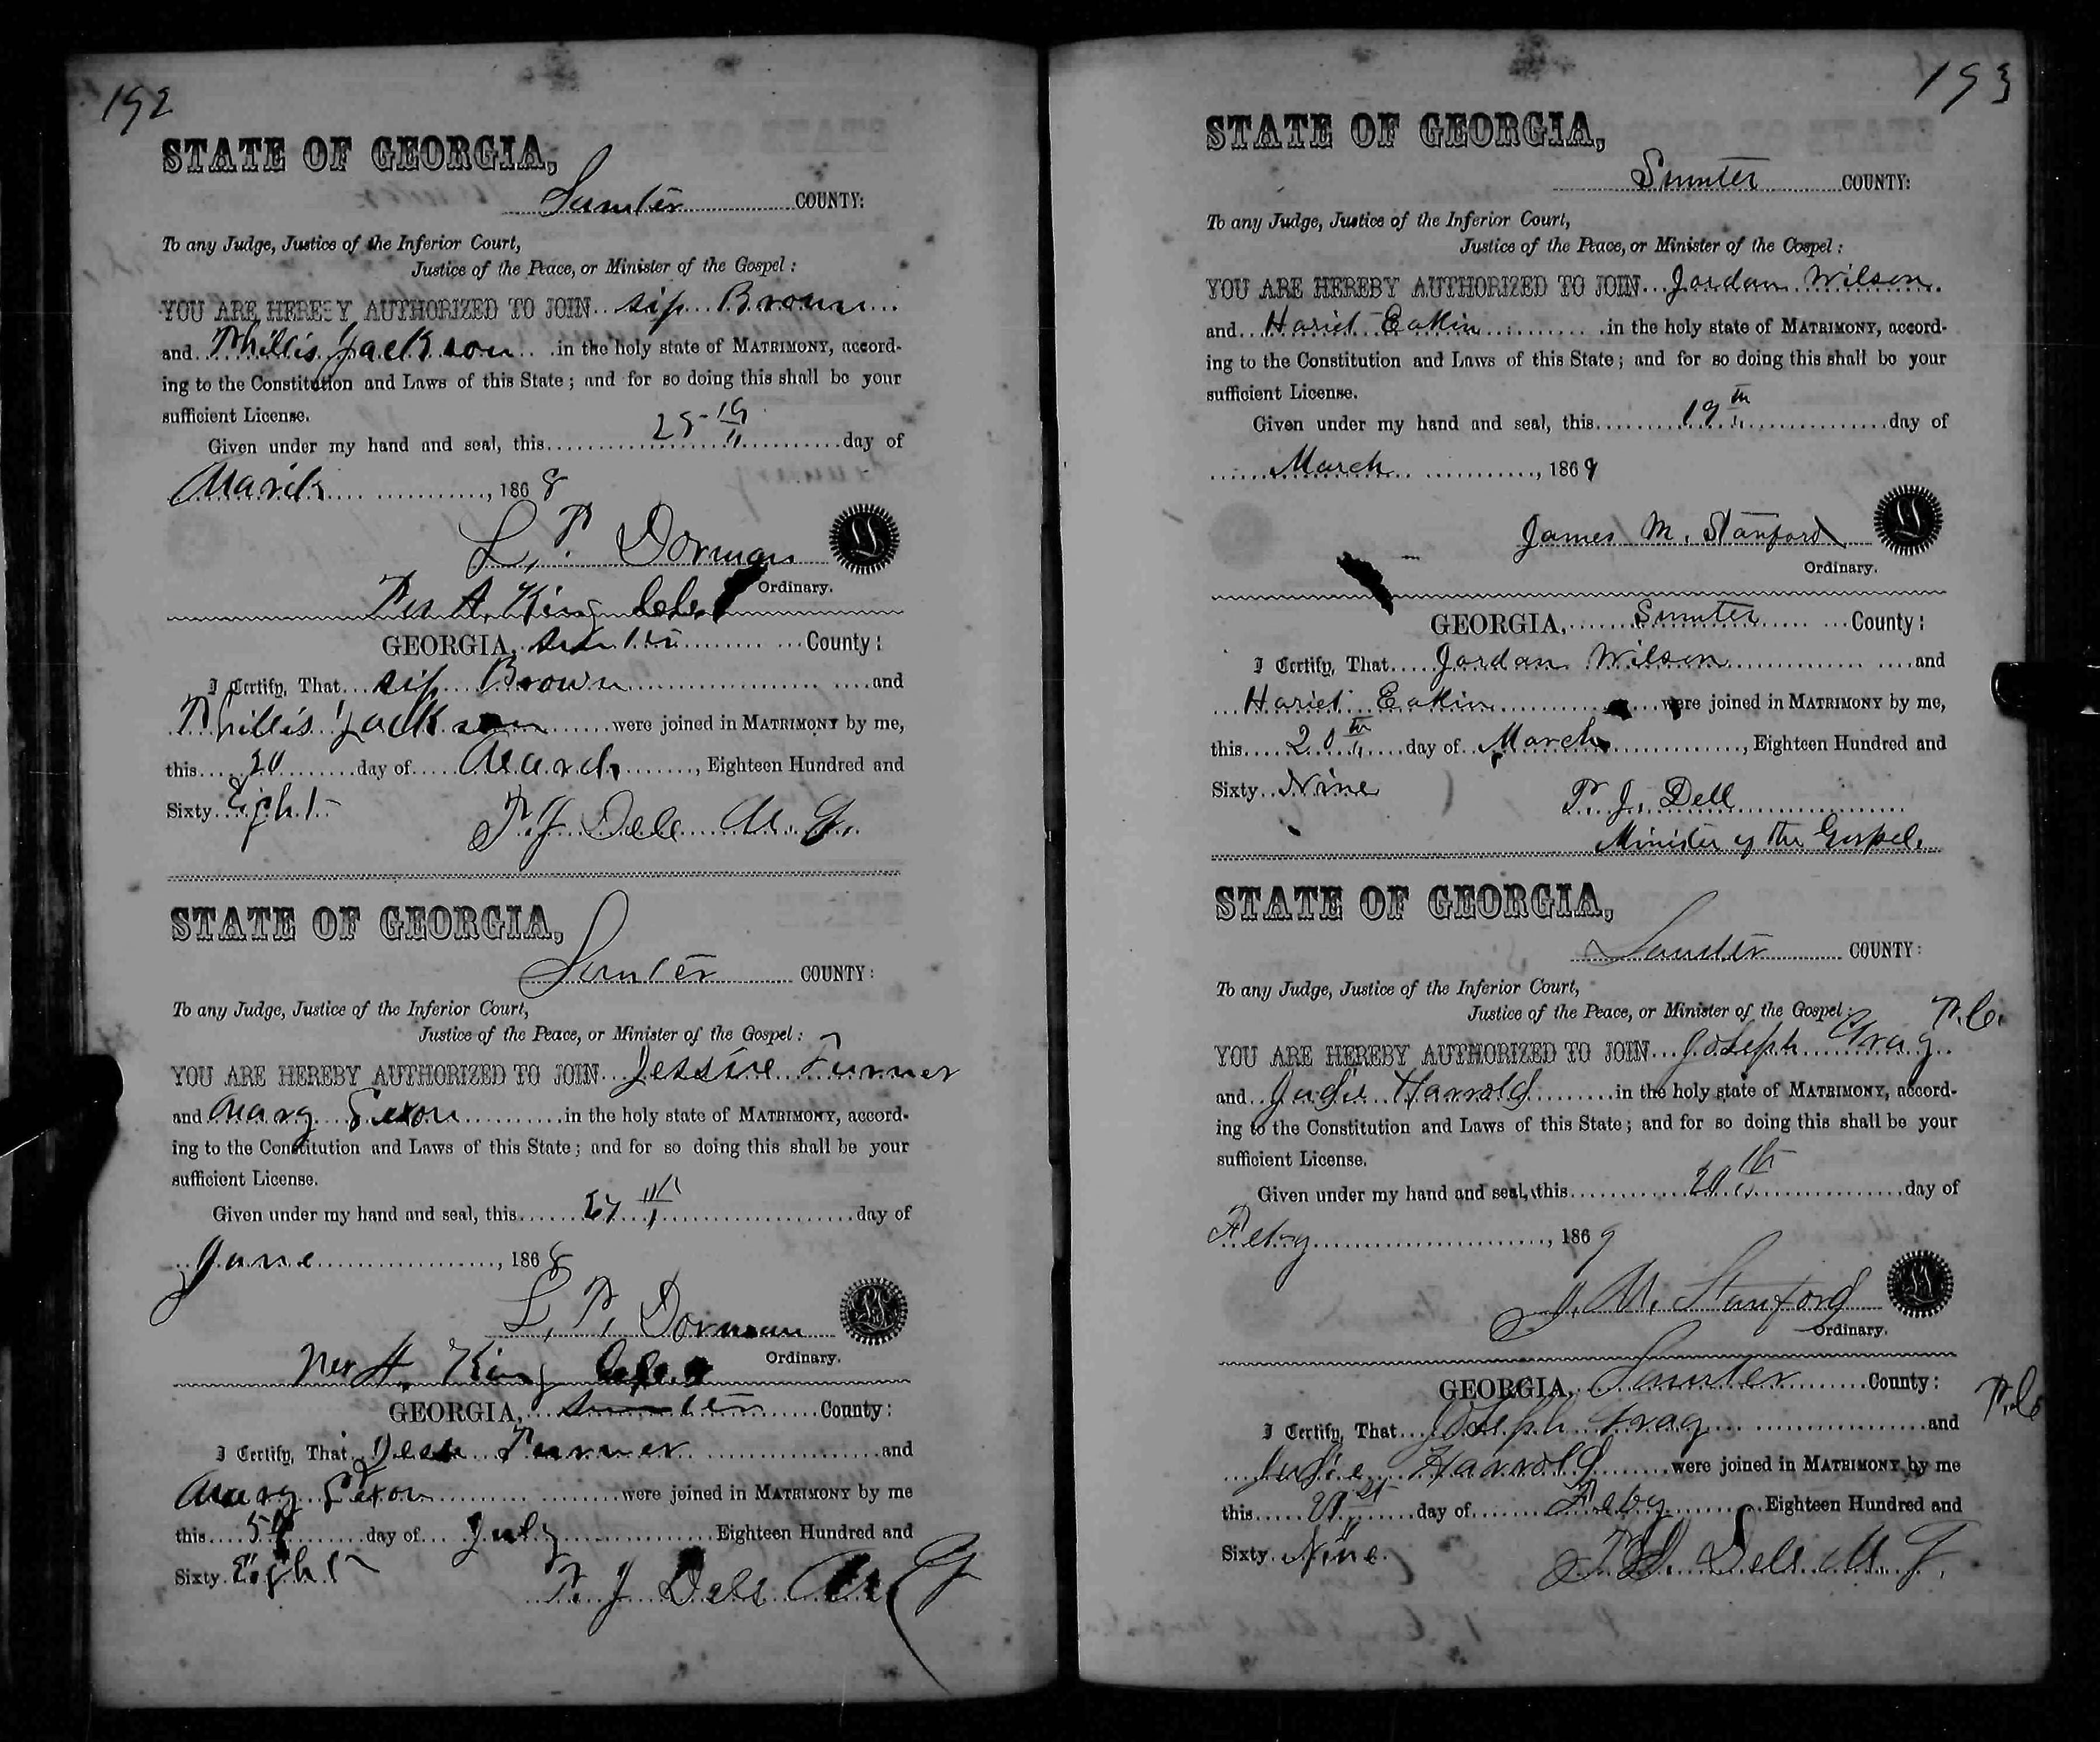 192
STATE OF GEORGIA,
Sumter COUNTY:
To any Judge, Justice of the Inferior Court,
Justice of the Peace, or Minister of the Gospel:
YOU ARE HEREBY AUTHORIZED TO JOIN sip Brown
and Phillis Jackson in the holy state of MATRIMONY, accord-
ing to the Constitution and Laws of this State; and for so doing this shall be your
sufficient License.
Given under my hand and seal, this day of
March, 1868
L. P. Dorman
Ordinary.
Per A. King
GEORGIA, Sumter County:
I Certify, That sip Brown and
Phillis Jackson were joined in MATRIMONY by me,
this day of March, Eighteen Hundred and
Sixty Eight
P. J. Dell M. G.
STATE OF GEORGIA,
Sumter COUNTY:
To any Judge, Justice of the Inferior Court,
Justice of the Peace, or Minister of the Gospel:
YOU ARE HEREBY AUTHORIZED TO JOIN Jessie Turner
and Mary Sexon in the holy state of MATRIMONY, accord-
ing to the Constitution and Laws of this State; and for so doing this shall be your
sufficient License.
Given under my hand and seal, this day of
June, 1868
L. P. Dorman
Ordinary.
Per A. King
GEORGIA, Sumter County:
I Certify, That Turner and
Mary Sexon were joined in MATRIMONY by me
this 5 day of July Eighteen Hundred and
Sixty Eight
P. J. Dell M G
193
STATE OF GEORGIA,
Sumter COUNTY:
To any Judge, Justice of the Inferior Court,
Justice of the Peace, or Minister of the Gospel:
YOU ARE HEREBY AUTHORIZED TO JOIN Jordan Wilson
and Hariet Eakin in the holy state of MATRIMONY, accord-
ing to the Constitution and Laws of this State; and for so doing this shall be your
sufficient License.
Given under my hand and seal, this 19th day of
March, 1869
James M. Stanford
Ordinary.
GEORGIA, Sumter County:
I Certify, That Jordan Wilson and
Hariet Eakin were joined in MATRIMONY by me,
this 20th day of March, Eighteen Hundred and
Sixty Nine
P. J. Dell
Minister of the Gospel.
STATE OF GEORGIA,
Sumter COUNTY:
To any Judge, Justice of the Inferior Court,
Justice of the Peace, or Minister of the Gospel:
P. C.
YOU ARE HEREBY AUTHORIZED TO JOIN Joseph Gray
and Judie Harrold in the holy state of MATRIMONY, accord-
ing to the Constitution and Laws of this State; and for so doing this shall be your
sufficient License.
Given under my hand and seal, this 20th day of
Feby, 1869
J. M. Stanford
Ordinary.
GEORGIA, Sumter County:
P. C.
I Certify, That Joseph Gray and
Judie Harrold were joined in MATRIMONY by me
this 21st day of Feby Eighteen Hundred and
Sixty Nine
P. J. Dell M. G.